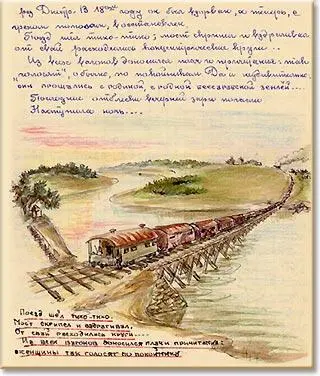 рез Днестр. В 18том году он был взорван, а теперь, с
грехом пополам, восстановлен.
Поезд шел тихо-тихо; мост скрипел и вздрагивал,
от свай расходились концентрические круги...
Из всех вагонов доносился плач и причитания: так
"голосят", обычно, по покойникам. Да и неудивительно:
они прощались с родиной, с родной бессарабской землей....
Последние отблески вечерней зари погасли
Наступила ночь....
Поезд шел тихо-тихо.
Мост скрипел и вздрагивал,
От свай расходились круги....
Из всех вагонов доносился плач и причитания:
женщины так голосят по покойнику